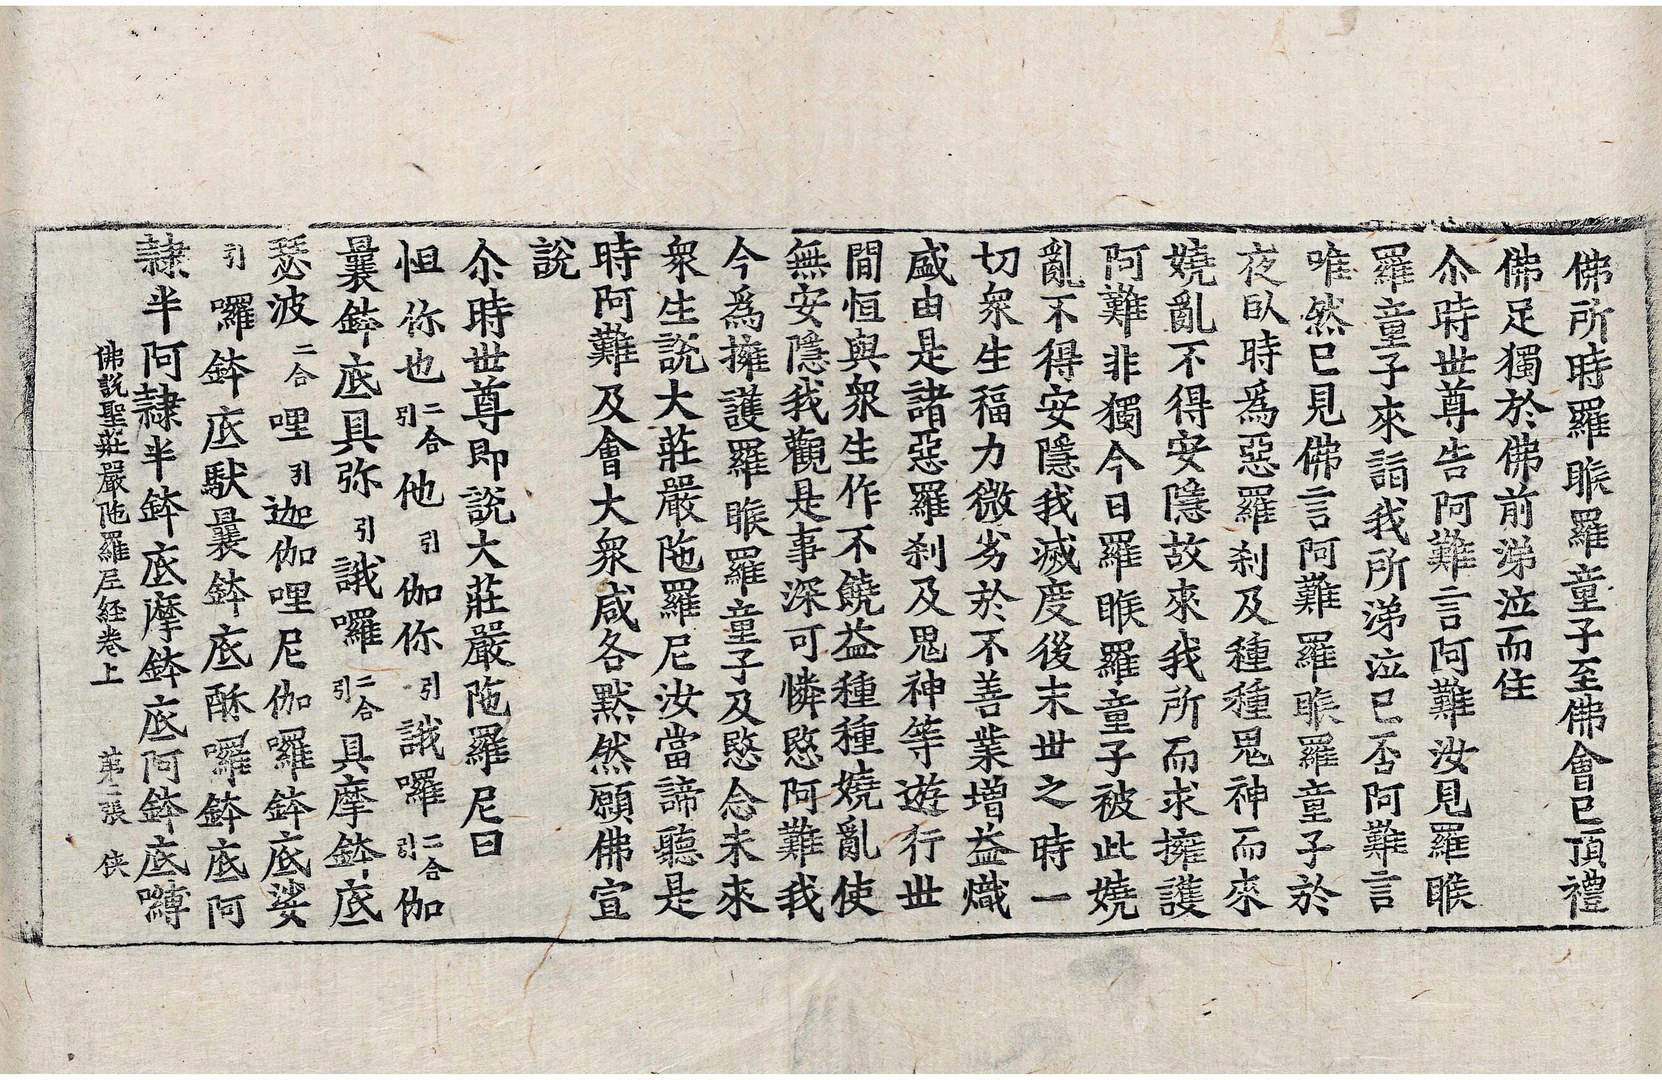 佛所時羅睺羅童子至佛會已頂禮
佛足獨於佛前涕泣而住
尒時世尊告阿難言阿難汝見羅睺
羅童子來詣我所涕泣已否阿難言
唯然已見佛言阿難羅睺羅童子於
夜臥時爲惡羅刹及種種鬼神而來
嬈亂不得安隱故來我所而求擁護
阿難非獨今日羅睺羅童子被此嬈
亂不得安隱我滅度後末世之時一
切衆生福力微劣於不善業增益熾
盛由是諸惡羅刹及鬼神等遊行世
間恒與衆生作不饒益種種嬈亂使
無安隱我觀是事深可憐愍阿難我
今爲擁護羅睺羅童子及愍念未來
衆生說大莊嚴陁羅尼汝當諦聽是
時阿難及會大衆咸各默然願佛宣
說
尒時世尊即說大莊嚴陁羅尼曰
怛你也二合引他引伽你引誐囉二合引伽
曩鉢底具弥引誐囉二合引具摩鉢底
瑟波二合哩引迦伽哩尼伽囉鉢底娑
引囉鉢底䭾曩鉢底酥囉鉢底阿
隸半阿隸半鉢底摩鉢底阿鉢底嚩
佛說聖莊嚴陁羅尼經卷上 第二張 俠